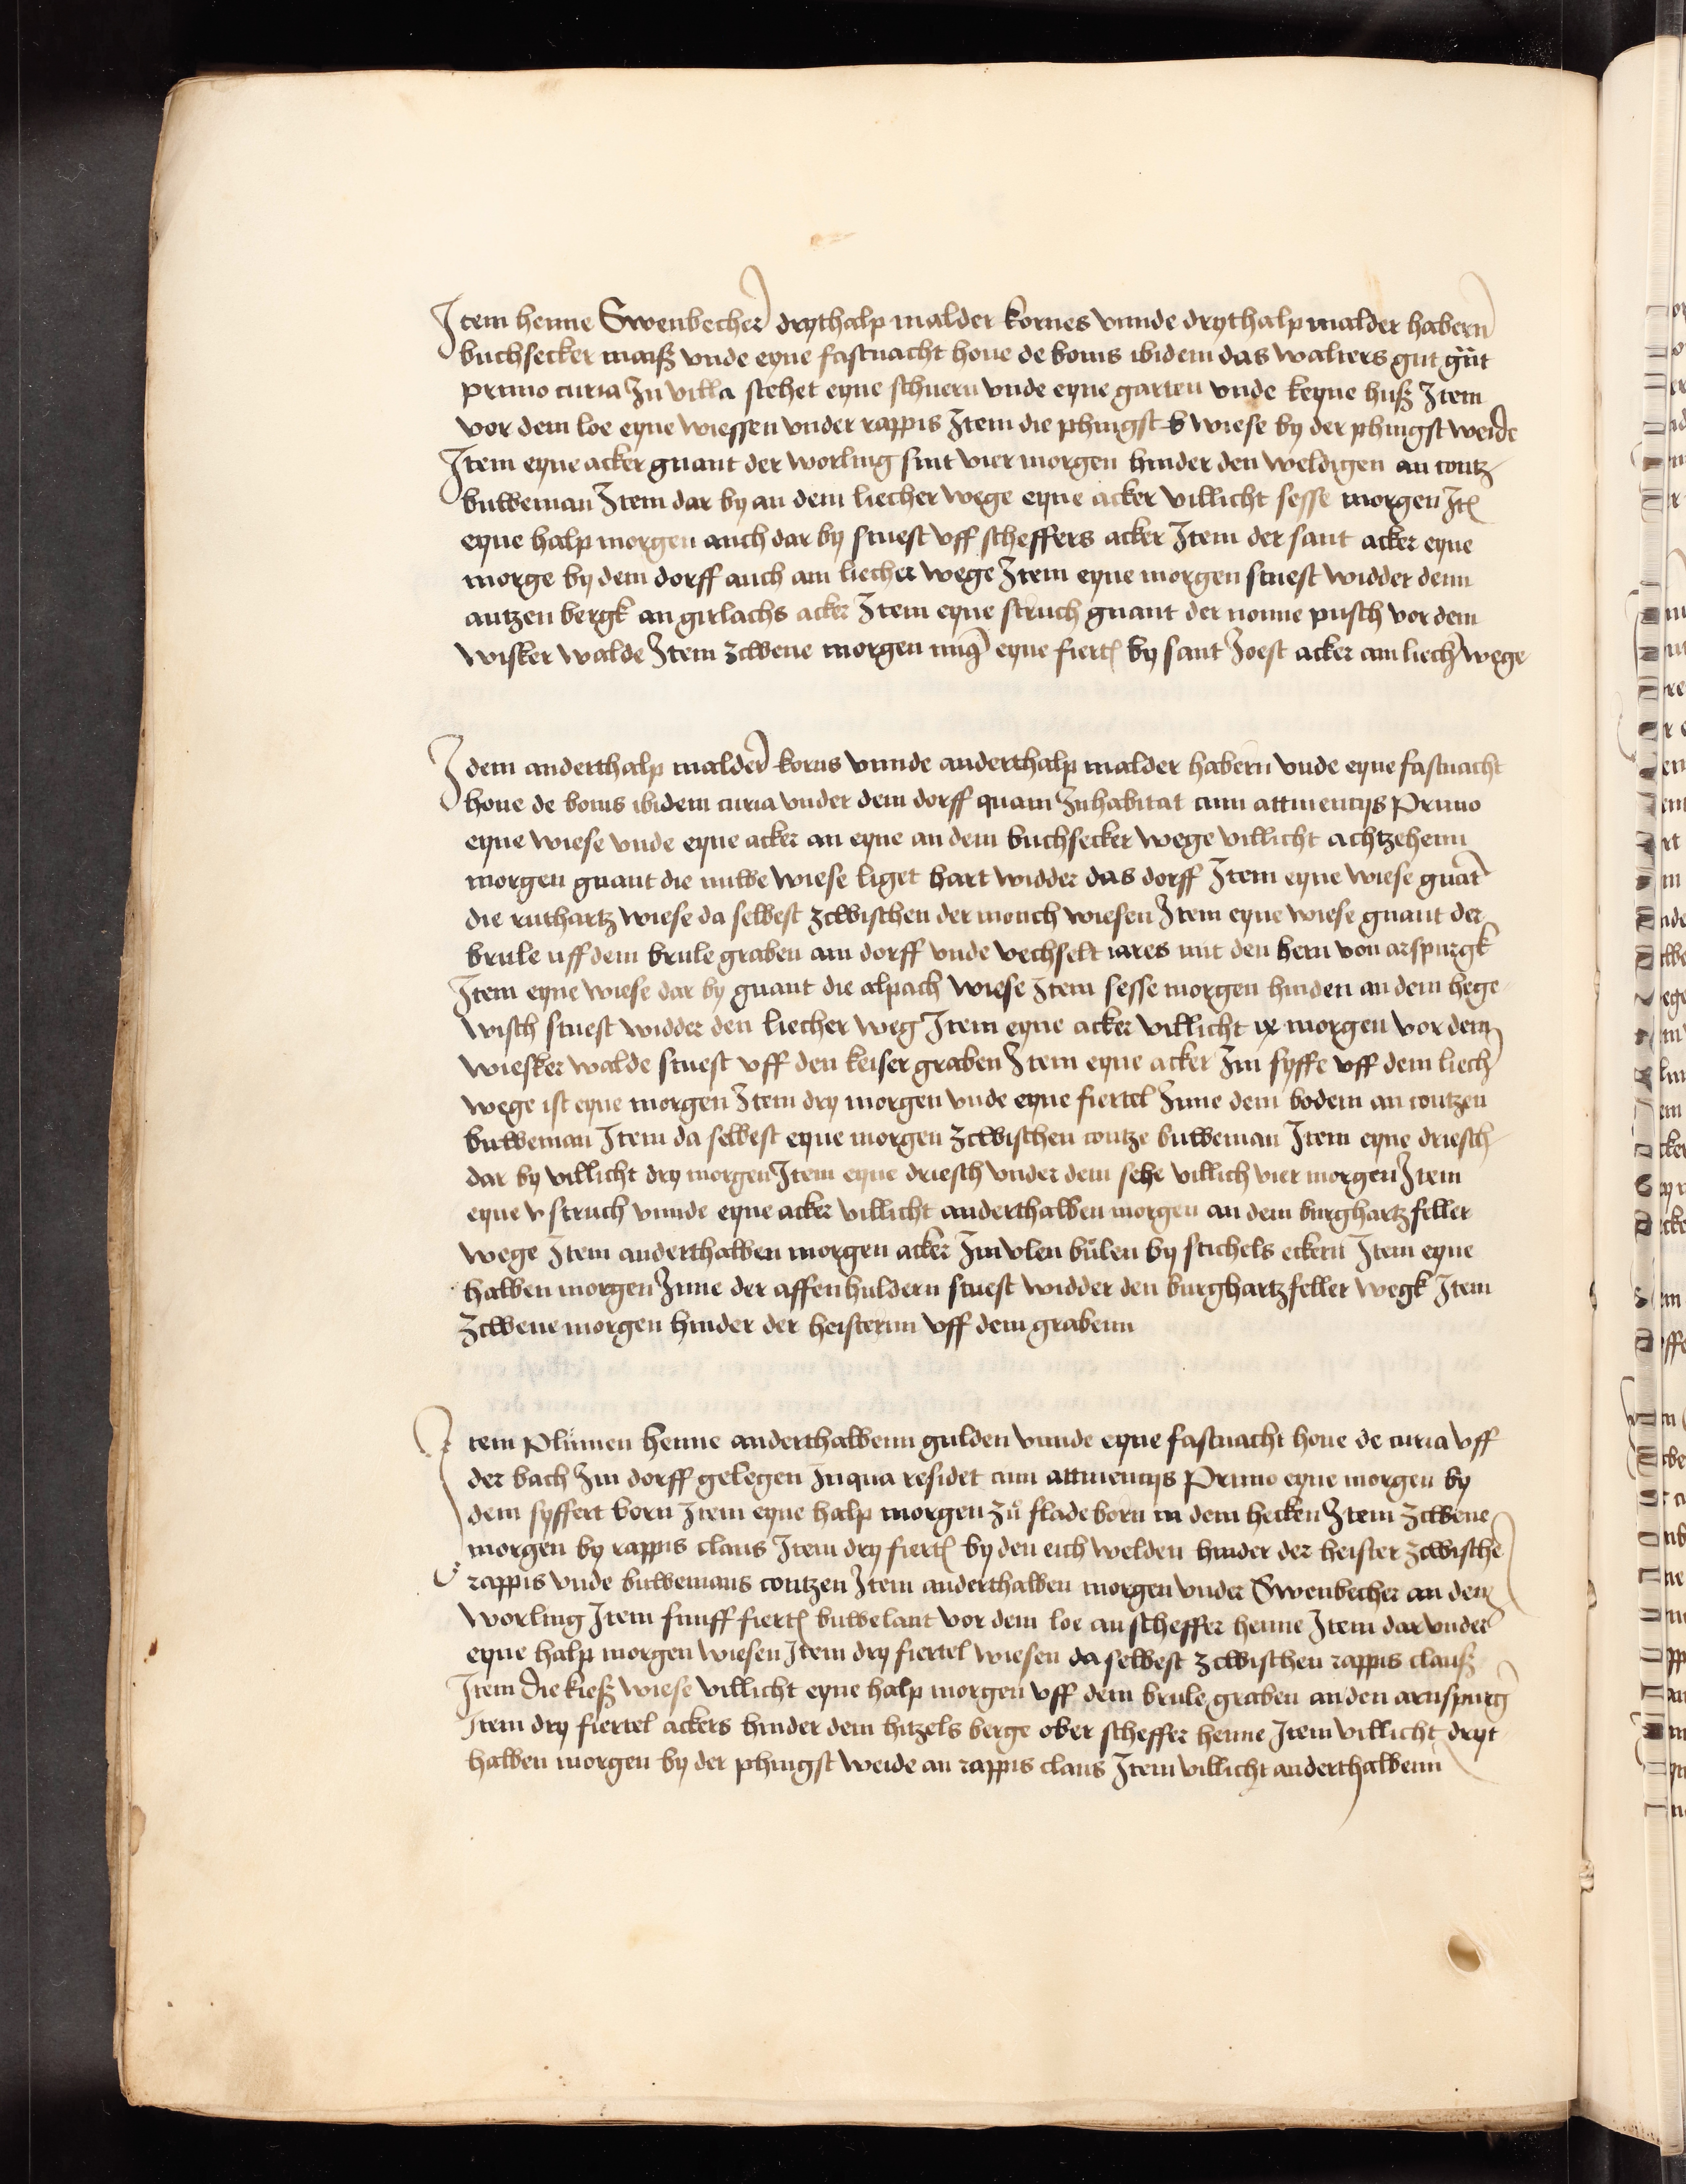 Item henne Swenbecher drythalp malder kornes vnnde drythalp malder habern
buchsecker maiß vnde eyne fastnacht hone de bonis ibidem das walters gut gu̍t
primo curia In villa stehet eyne schuern vnde eyne garten vnde keyne huß Item
vor dem loe eyne wiessen vnder rappis Item die phingst wiese by der phingst weide
Item eyne acker gnant der worling sint vier morgen hinder den weldigen an contz
buweman Item dar by an dem liecher wege eyne acker villicht sesse morgen Itē
eyne halp morgen auch dar by stuest vff scheffers acker Item der sant acker eyne
morge by dem dorff auch am liecher wege Item eyne morgen stuest widder denn
antzen bergk an girlachs acker Item eyne struch gnant der nonne pusch vor dem
wisker walde Item zcwene morgen eyne fiertl by sant Joest acker am liech wege
Idem anderthalp malder korns vnnde anderthalp malder habern vnde eyne fastnacht
hone de bonis ibidem curia vnder dem dorff quam Inhabitat cum attinencijs Primo
eyne wiese vnde eyne acker an eyne an dem buchsecker wege villicht achtzehenn
morgen gnant die nuwe wiese liget hart widder das dorff Item eyne wiese gnāt
die ruthartz wiese da selbest zcwischen der monch wiesen Item eyne wiese gnant der
brule uff dem brule graben am dorff vnde vechselt iares mit den hern von arspurgk
Item eyne wiese dar by gnant die alpach wiese Item sesse morgen hinden an dem hege
wisch stuest widder den liecher weg Item eyne acker villicht ix morgen vor dem
wiesker walde stuest vff den keiser graben Item eyne acker Im syffe vff dem liech
wege ist eyne morgen Item dry morgen vnde eyne fiertel Inne dem bodem an contzen
buweman Item da selbest eyne morgen zcwischen contze buweman Item eyne driesch
dar by villicht dry morgen Item eyne driesch vnder dem sehe villich vier morgen Item
eyne v struch vnnde eyne acker villicht anderthalben morgen an dem burghartzfeller
wege Item anderthalben morgen acker Im vlen bu̍len by stichels eckern Item eyne
halben morgen Inne der affenhuldern stuest widder den burghartzfeller wegk Item
zcwene morgen hinder der heisternn vff dem grabenn
Item Plu̍men henne anderthalbenn gulden vnnde eyne fastnacht hone de curia vff
der bach Im dorff gelegen Inqua residet cum attinencijs Primo eyne morgen by
dem syffert born Item eyne halp morgen zu̍ fladeborn in dem hecken Item zcwene
morgen by rappis claus Item dry fiertl by den eich welden hinder der heister zcwische
rappis vnde buwemans contzen Item anderthalben morgen vnder Swenbecher an dem
worling Item funff fiertl buwelant vor dem loe an scheffer henne Item dar vnder
eyne halp morgen wiesen Item dry fiertel wiesen da selbest zcwischen rappis clauß
Item die kieß wiese villicht eyne halp morgen vff dem brule graben an den arnspurg
Item dry fiertel ackers hinder dem hitzels berge ober scheffer henne Item villicht dryt
halben morgen by der phingst weide an rappis claus Item villicht anderthalbenn